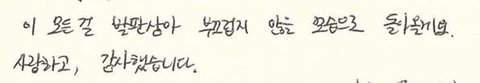 이 모든걸 발판삼아 부끄럽지 않을 모습으로 돌아올게요.
사랑하고, 감사했습니다.